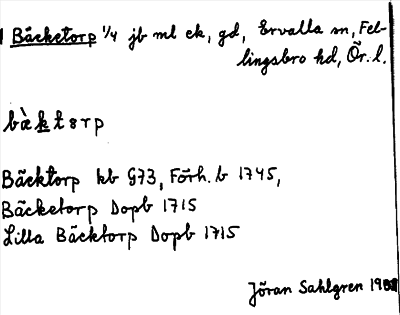 Bäcketorp 1/4 jb ml ek, gd, Ervalla sn, Fel-
lingsbro hd, Ör. l.
bæ̀ktɵrp
Bäcktorp kb G73, Förh. b 1745,
Bäcketorp Dopb 1715
Lilla Bäcktorp Dopb 1715
Jöran Sahlgren